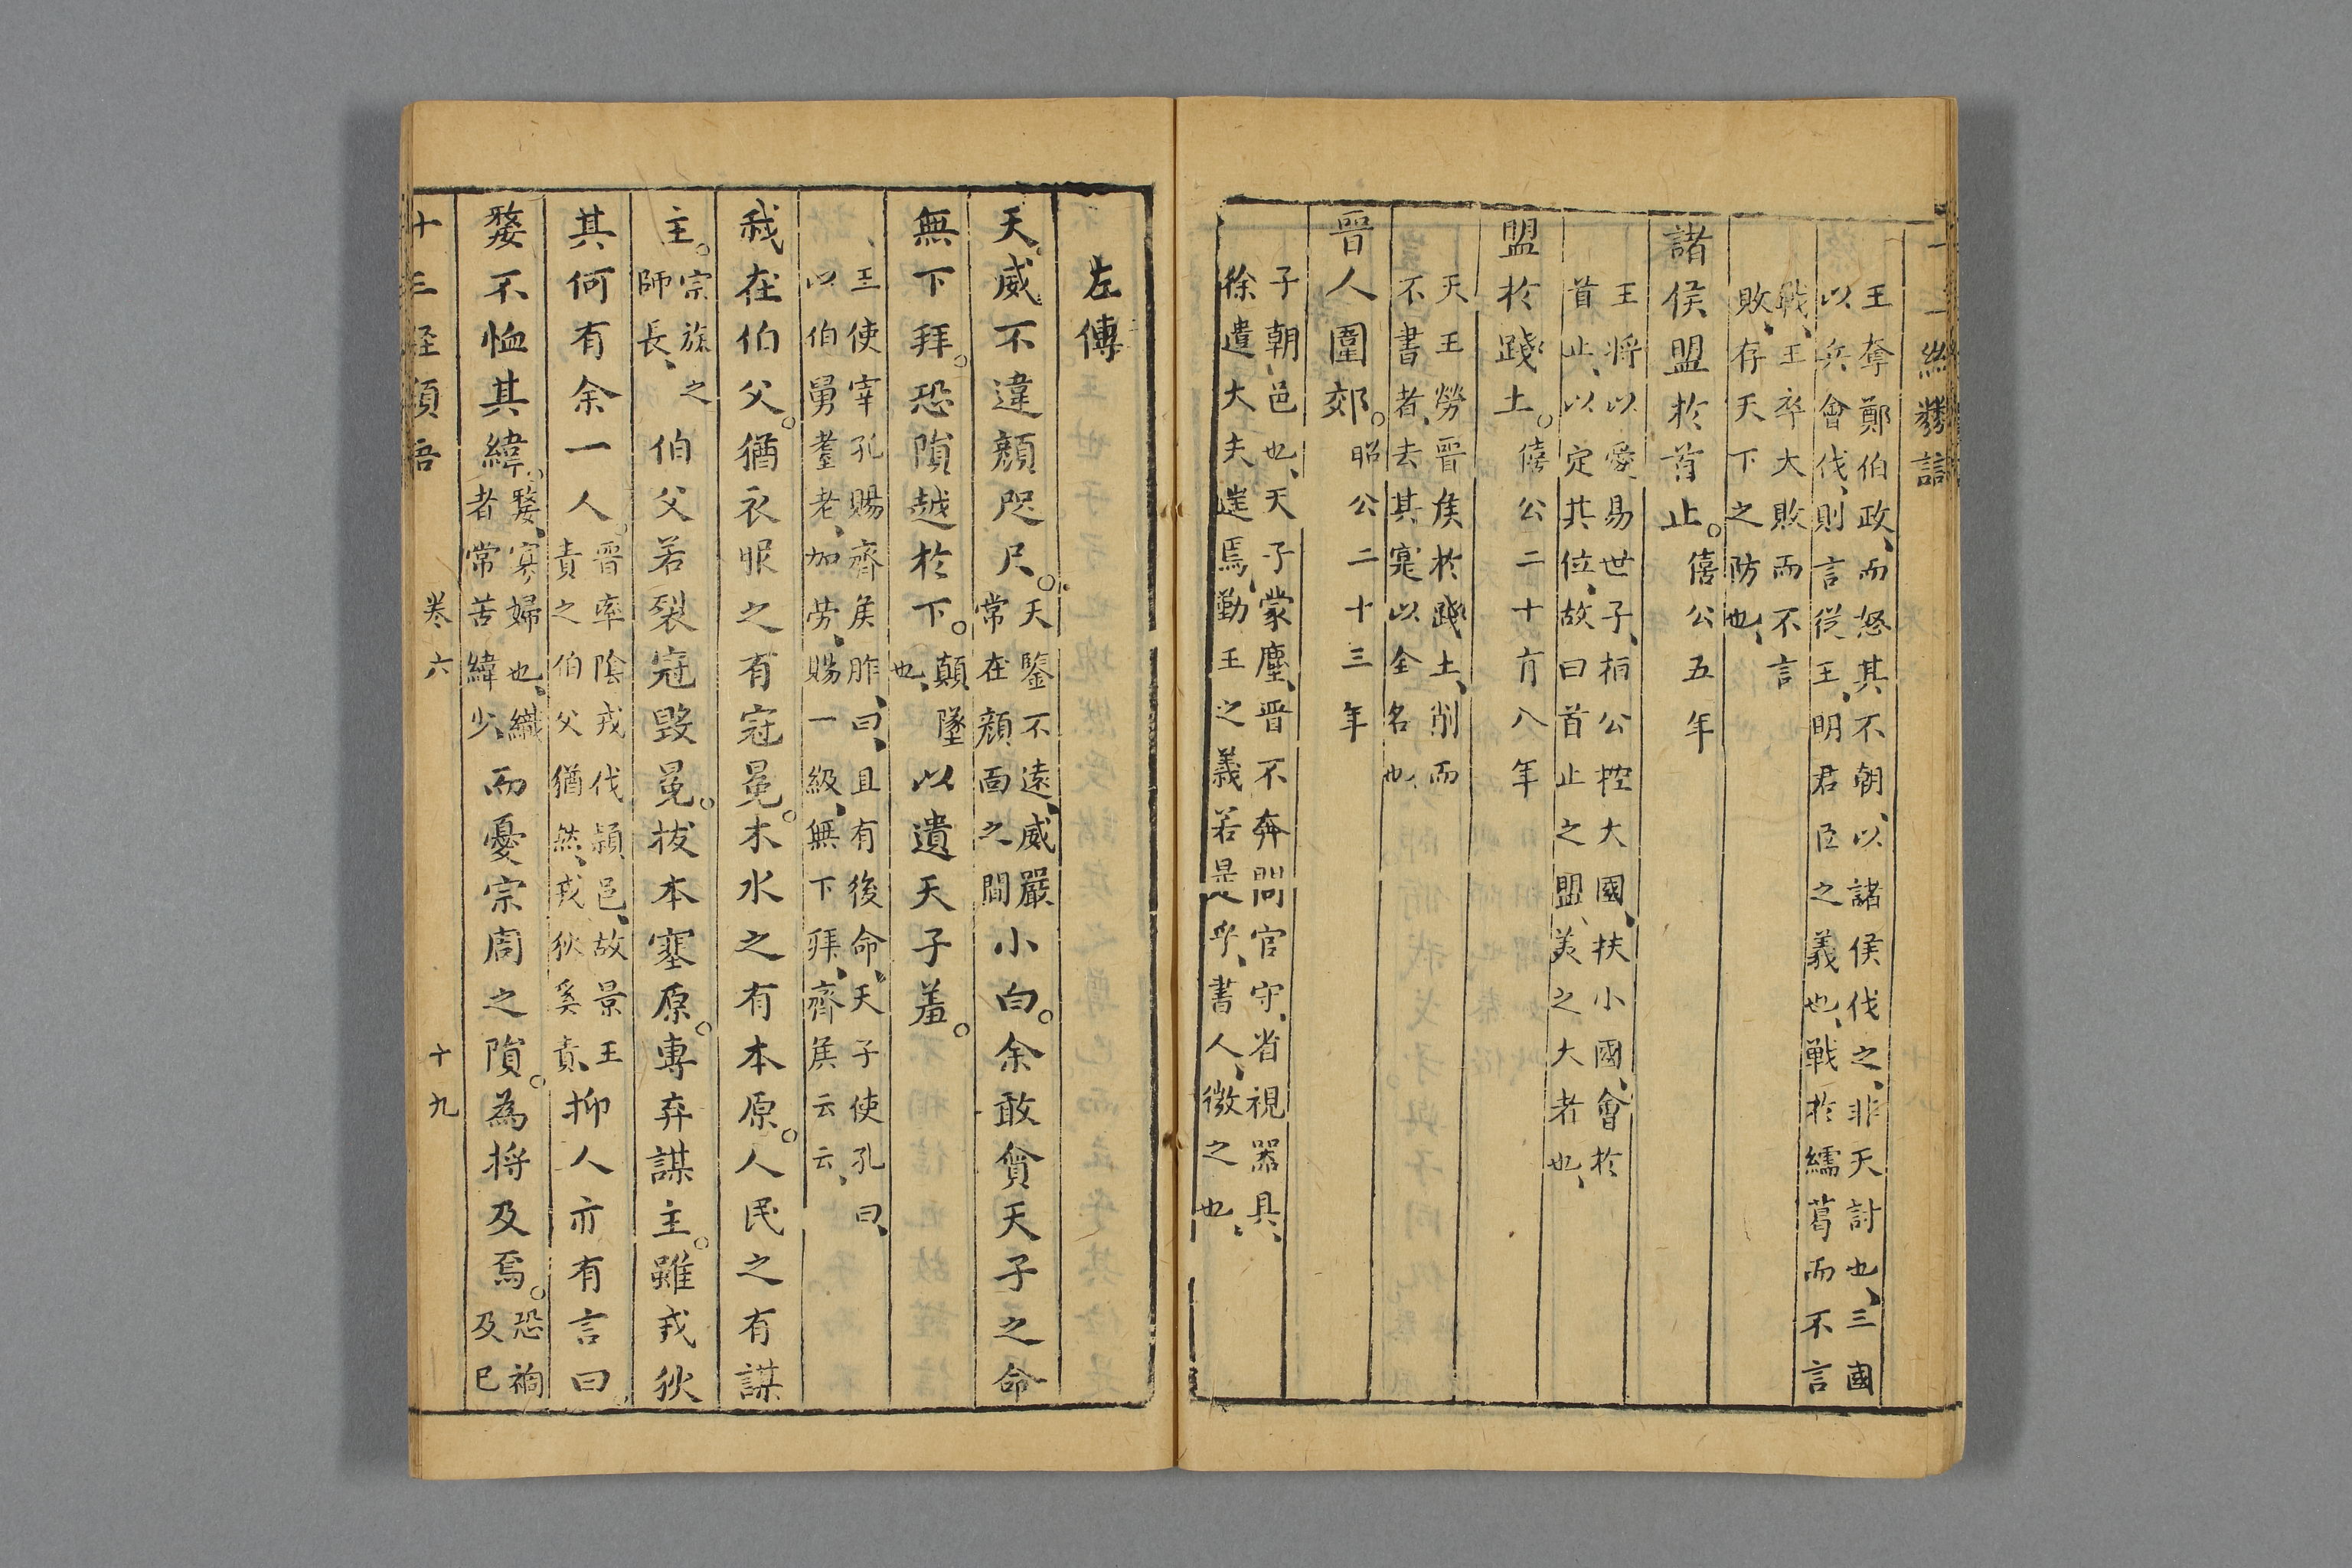 王奪鄭伯政、而怒其不朝、以諸侯伐之、非天討也、三國
以兵會伐、則言從王、明君臣之義也、戰於繻葛而不言
戰、王卒大敗而不言
敗、存天下之防也、
諸侯盟於首止。僖公五年
王將以愛易世子、桓公控大國、扶小國、會於
首止、以定其位、故曰首止之盟、美之大者也、
盟於踐土。僖公二十有八年
天王勞晉侯於踐土、削而
不書者、去其寔以全名也
晉人圍郊。昭公二十三年
子朝邑也、天子蒙塵、晉不奔問官守、省視器具、
徐遣大夫往焉、勤王之義若是乎、書人、微之也、
左傳
天威不違顏咫尺。天鑒不遠、威嚴
常在顏面之間小白。余敢貪天子之命
無下拜。恐隕越於下。顛墜
也、以遺天子羞。
王使宰孔賜齊侯胙、曰、且有後命、天子使孔曰、
以伯舅耋老、加勞、賜一級、無下拜、齊侯云云、
我在伯父。猶衣服之有冠冕。木水之有本原。人民之有謀
主。宗族之
師長、伯父若裂冠毀冕。拔本塞原。專弃謀主。雖戎狄
其何有余一人。晉率陰戎伐潁邑、故景王
責之伯父猶然、戎狄奚責、抑人亦有言曰
嫠不恤其緯。嫠、寡婦也、織
者常苦緯少、而憂宗周之隕。為將及焉。恐禍
及己
十三經類語 卷六 十九